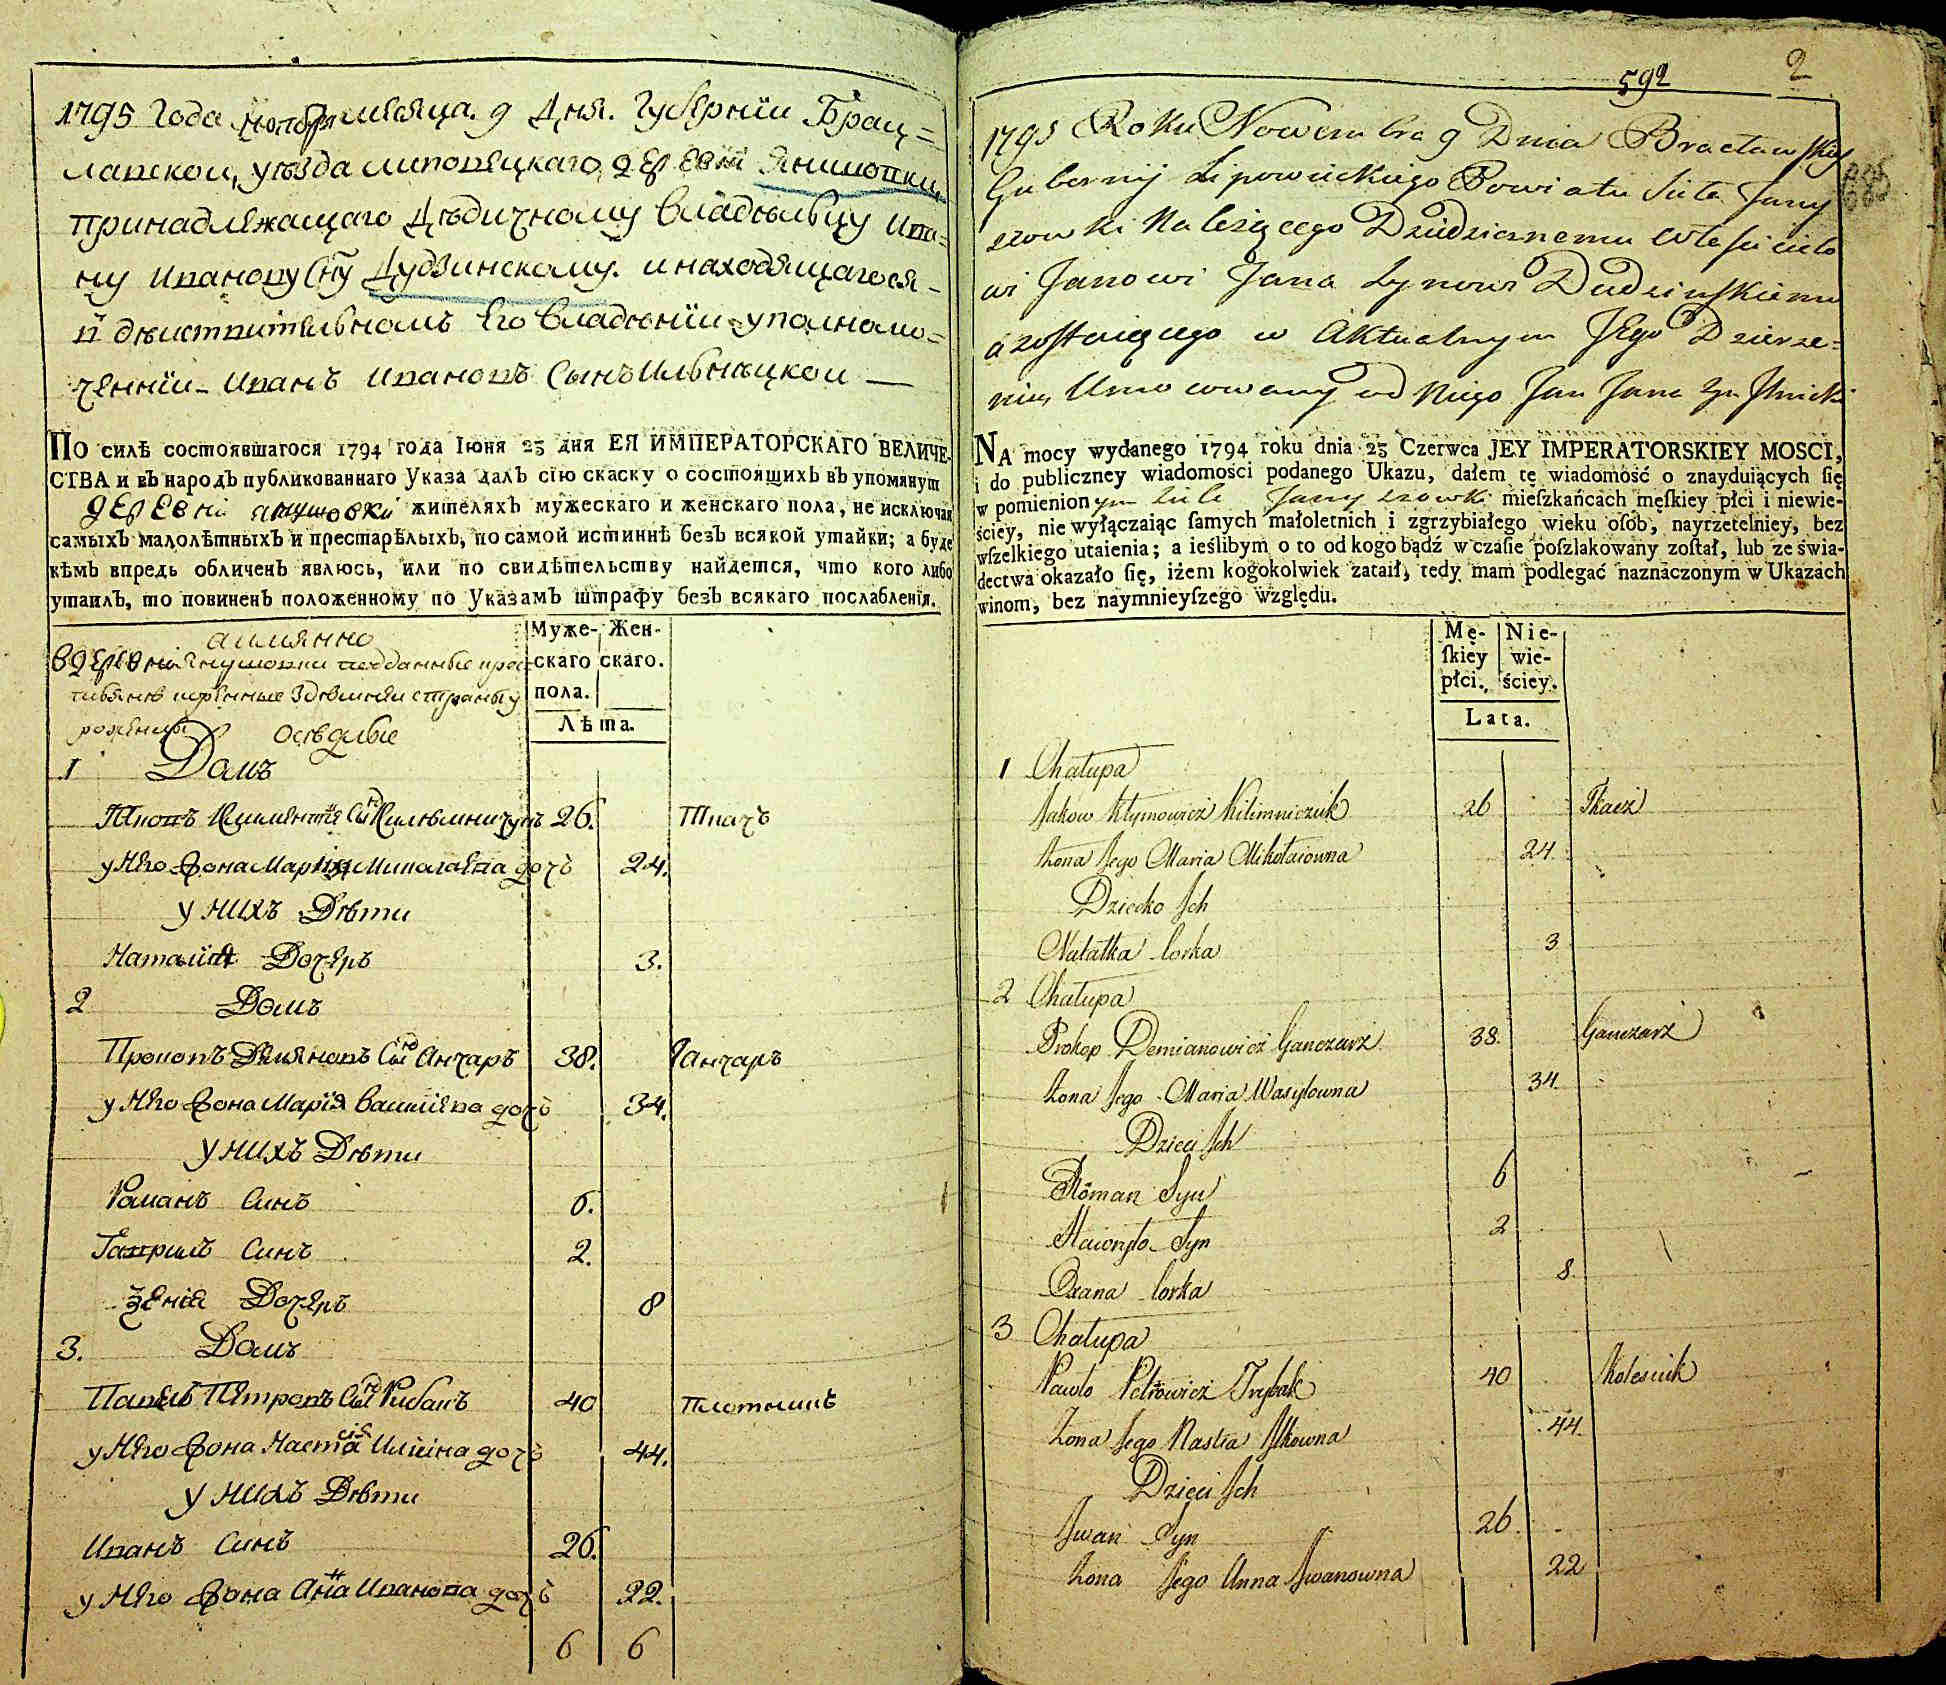 1795 года ноября месяца 9 дня. Губернїи Брац=
лавской, уезда липовецкаго деревни Янишовки,
принадлежащаго дѣдичному владѣльцу Ива=
ну Иванову Сну Дудзинскому. и находящагося
в дѣиствительномъ его владѣнїи уполномо=
ченнїи Иванъ Ивановъ Сынъ Ильницкои
ПО силѣ состоявшагося 1794 года Іюня 23 дня ЕЯ ИМПЕРАТОРСКАГО ВЕЛИЧЕ-
СТВА и въ народъ публикованнаго Указа далъ сію скаску о состоящихъ въ упомянут
деревни жителяхъ мужескаго и женскаго пола, не исключая
самыхъ малолѣтныхъ и престарѣлыхъ, по самой истиннѣ безъ всякой утайки; а буде
кѣмъ впредь обличенъ явлюсь, или по свидѣтельству найдется, что кого либо
утаилъ, то повиненъ положенному по Указамъ штрафу безъ всякаго послабленія.
а имянно
в деревни Янушовки подданные
роженцы Осѣдлые
Муже- Жен-
скаго скаго.
пола.
Лѣта.
1 Домъ
Яковъ Климентїя Снъ Килѣмничукъ 26. Ткачъ
у Него Жона Марїя Миколаева дочь 24.
у нихъ Дѣти
Наталїя Дочерь 3.
2 Домъ
Прокопъ Демяновъ Снъ Анчаръ 38. Ганчаръ
у Него Жона Марїя Василіева дочь 34.
у нихъ Дѣти
Романъ Синъ 6.
Гаврилъ Синъ 2.
Дочерь 8
3. Домъ
Павелъ Петровъ Снъ Рибакъ 40 Плотникъ
у Него Жона Настасїя Илїина дочь 44.
у нихъ Дѣти
Иванъ Синъ 26.
у Него Жона Анна Иванова дочь 22.
6 6
592 2
1795 Roku Nowembra 9 Dnia Bractawskiey
Gubernij Lipowieckiego Powiatu Siła Jany
szowki Należącego Dziedzicznemu Właścicielo
wi Janowi Jana Synowi Dudzinſkiemu
a zoſtaiącego w Aktualnym Jego Dzierże=
niu, Umocowany od Niego Jan Jana Syn Jlnicki
NA mocy wydanego 1794 roku dnia 23 Czerwca JEY IMPERATORSKIEY MOSCI,
i do publiczney wiadomości podanego Ukazu, dałem tę wiadomość o znayduiących ſię
w pomienionym Sile Janyszowki mieſzkańcach męſkiey płci i niewie-
ściey, nie wyłączaiąc ſamych małoletnich i zgrzybiałego wieku oſób, nayrzetelniey, bez
wſzelkiego utaienia; a ieślibym o to od kogo bądź w czaſie poſzlakowany zoſtał, lub ze świa-
dectwa okazało ſię, iżem kogokolwiek zataił, tedy mam podlegać naznaczonym w Ukazach
winom, bez naymnieyſzego względu.
Mę- Nie-
ſkiey wie-
płci. ściey.
Lata.
1 Chałupa
Jakow Klymowicz Kilimniczuk 26 Tkacz
Zona Jego Maria Mikołaiowna 24
Dziecko Jch
Natalka Corka 3
2 Chałupa
Prokop Demianowicz Ganczarz 38 Ganczarz
Zona Jego Maria Wasylowna 34
Dzieci Jch
Roman Syn 6
Hawryło Syn 2
Oxana Corka 8
3 Chałupa
Pawło Petrowicz Rybak 40 Kolesnik
Zona Jego Nastia Jlkowna 44
Dzieci Jch
Jwan Syn 26
Zona Jego Anna Jwanowna 22